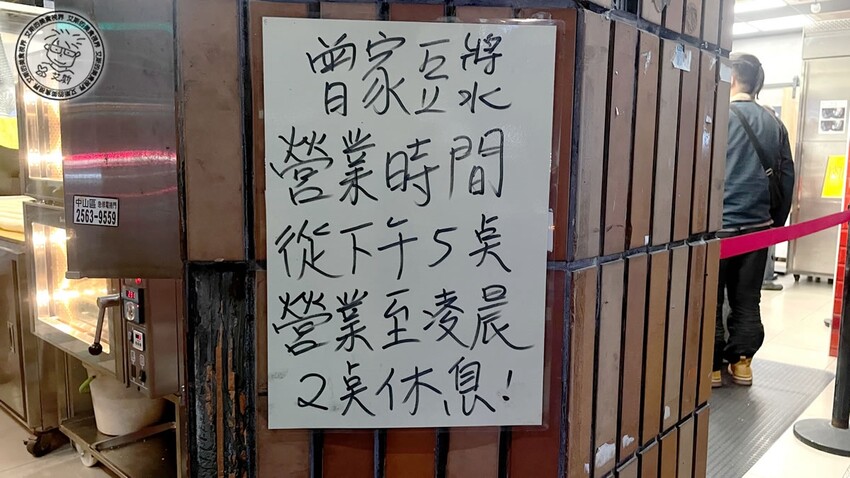 曾家豆漿
營業時間
從下午5点
營業至凌晨
2点休息!
中山區
2563-9559
艾斯